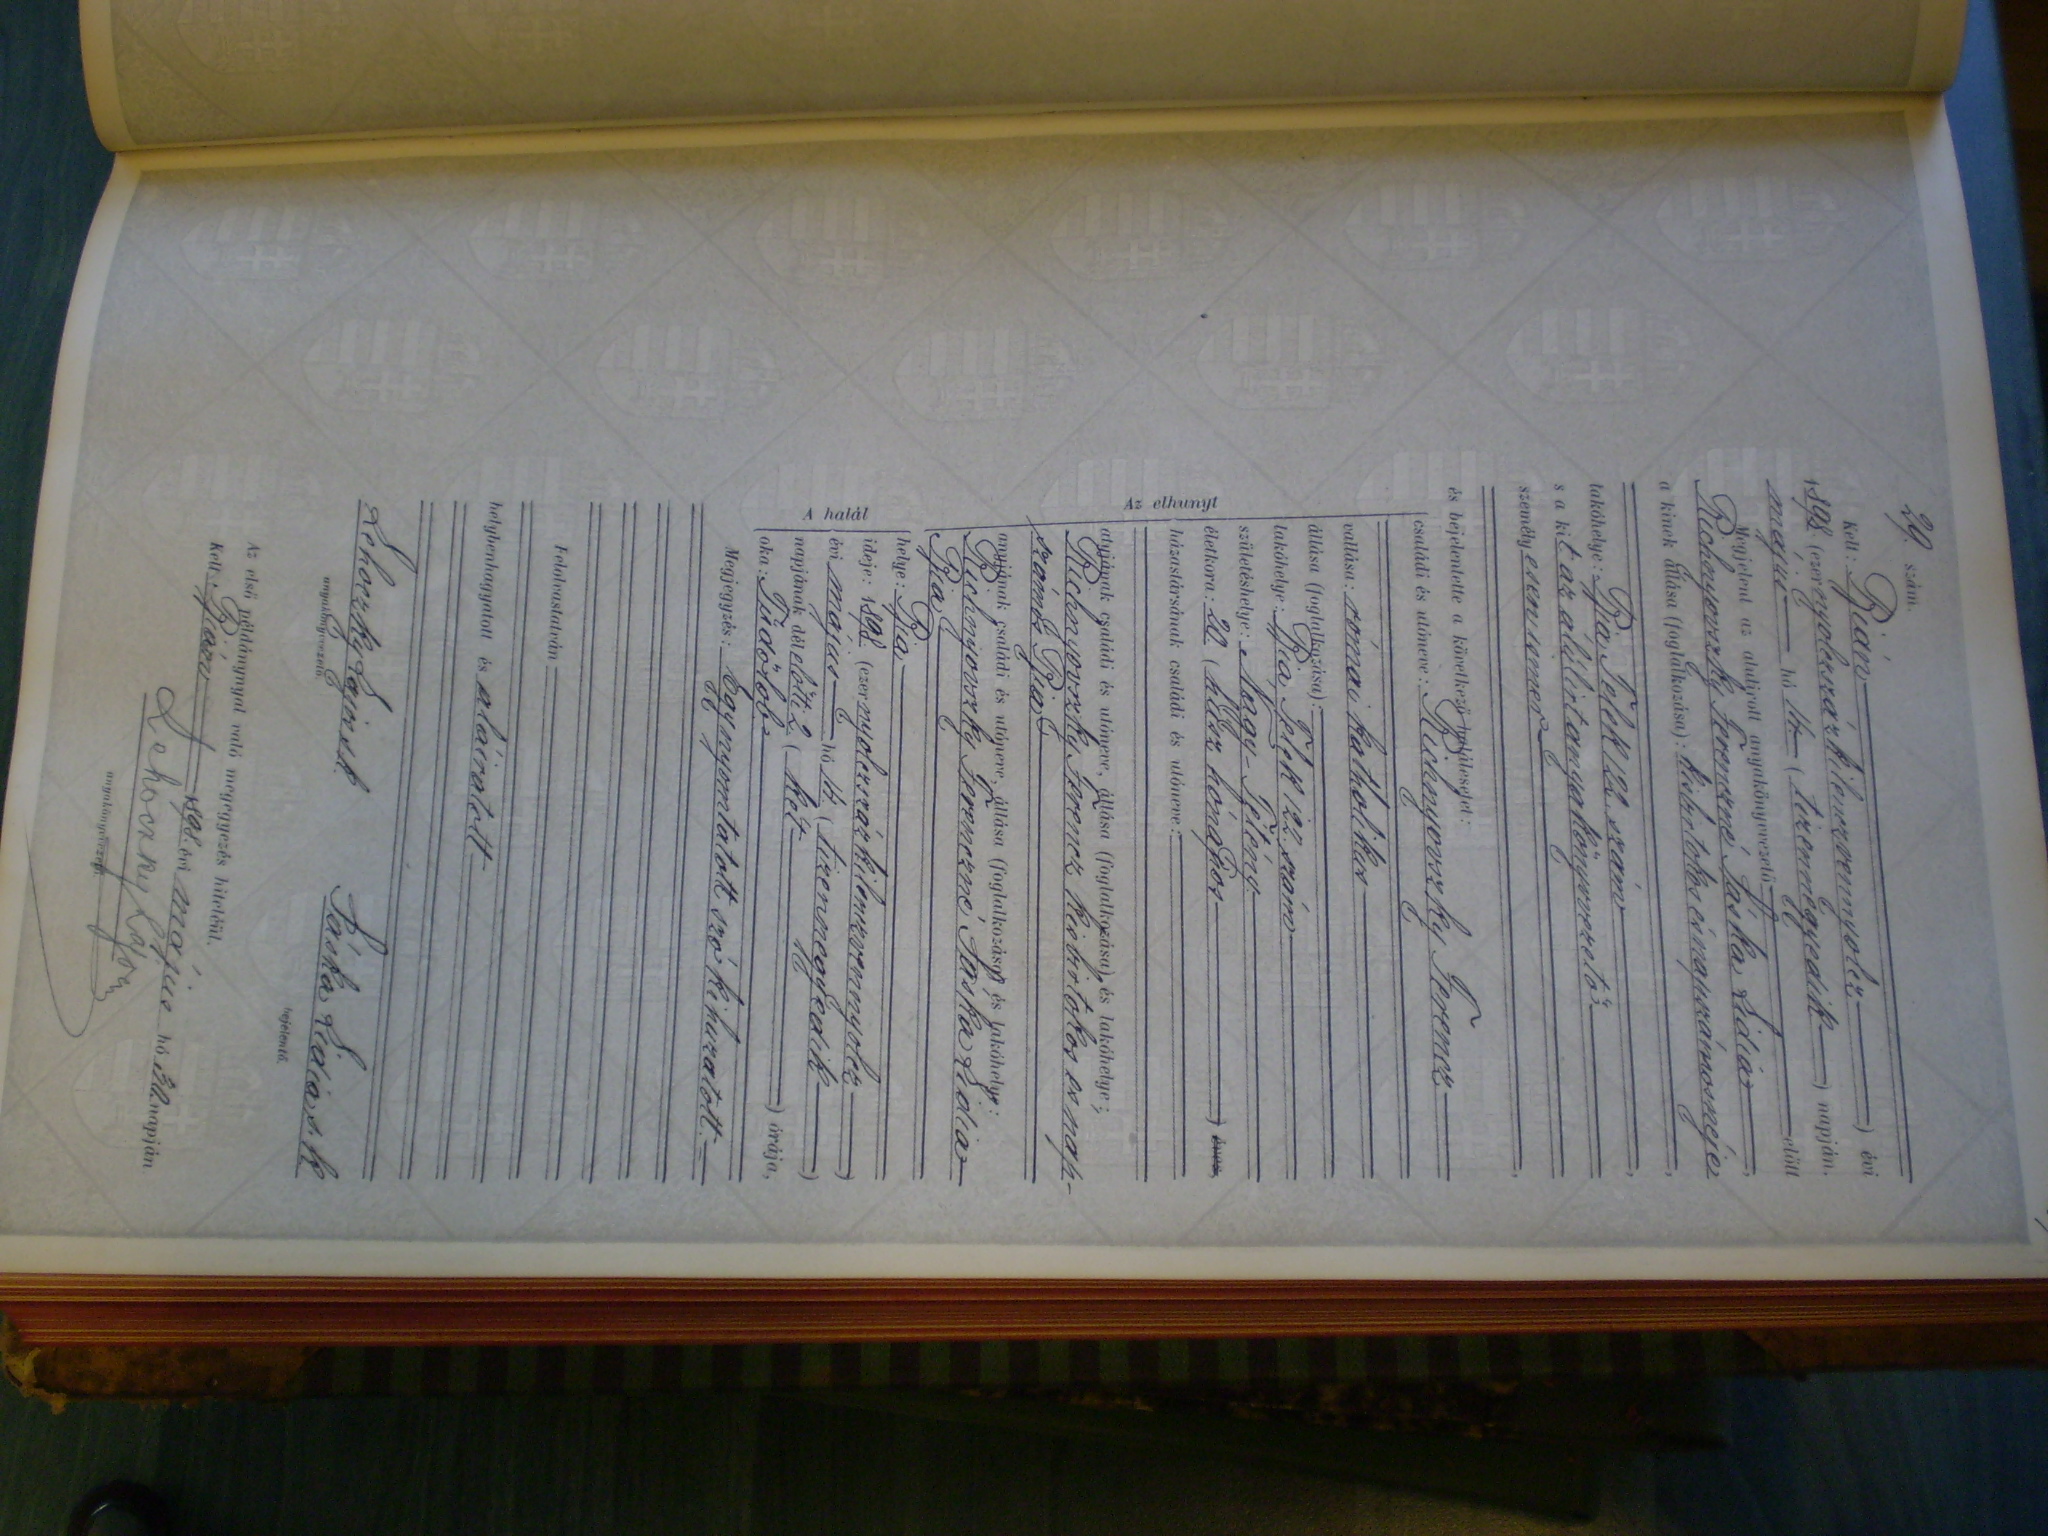 29. szám.
Kelt: Bián 
1898. (ezernyolczszázkilenczvennyolcz) évi
május hó 14 (tizennégyedik) napján.
Megjelent az alulirott anyakönyvvezető előtt
Richnyovszky Ferenczné Sáska Lidia,
a kinek állása (foglalkozása): kisbirtokos és napszámos neje,
lakóhelye: Bia, Telek 122. szám,
s a kit az alúlírt anyakönyvvezető
személyesen ismer,
és bejelentette a következő halálesetet:
Az elhunyt
családi és utóneve: Richnyovszky Ferencz
vallása: római katholikus
állása (foglalkozása):
lakóhelye: Bia, Telek 122. szám
születéshelye: Nagy-Tétény
életkora: 20 (húsz hónapos) éves,
házastársának családi és utóneve:
atyjának családi és utóneve, állása (foglalkozása) és lakóhelye:
Richnyovszky Ferencz kisbirtokos és nap-
számos Bia
anyjának családi és utóneve, állása (foglalkozása) és lakóhelye:
Richnyovszky Ferenczné Sáska Lidia
Bia
A halál
helye: Bia
ideje: 1898. (ezernyolczszázkilenczvennyolcz)
évi május hó 14 (tizennégyedik)
napjának délelőtti 2 (két) órája,
oka: Tüdőlob
Megjegyzés: Egy nyomtatott szó kihuzatott.
Felolvastatván
helybenhagyatott és aláiratott.
Lehoczky Lajos s.k.
anyakönyvvezető.
Sáska Lidia s.k.
bejelentő.
Az első példánynyal való megegyezés hiteléül.
Kelt: Bián 1898. évi május hó 31. napján
Lehoczky Lajos
anyakönyvvezető.